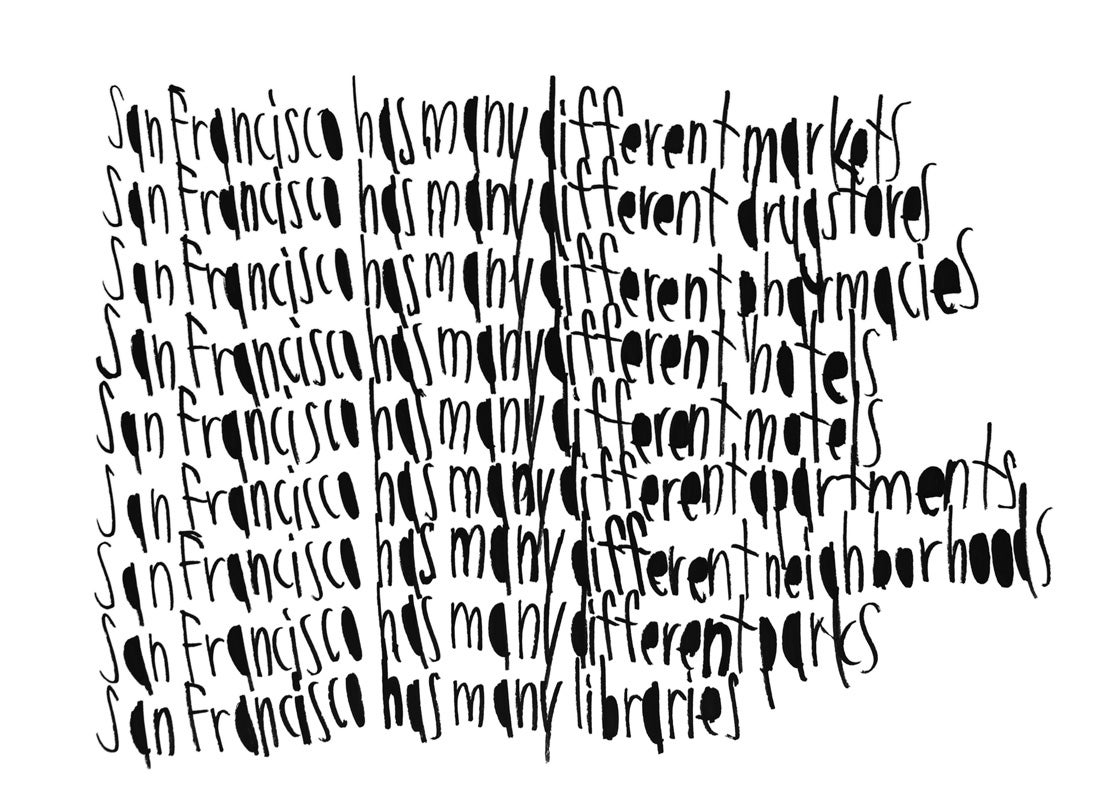 San Francisco has many different markets
San Francisco has many different drugstores
San Francisco has many different pharmacies
San Francisco has many different hotels
San Francisco has many different motels
San Francisco has many different apartments
San Francisco has many different neighborhoods
San Francisco has many different parks
San Francisco has many libraries